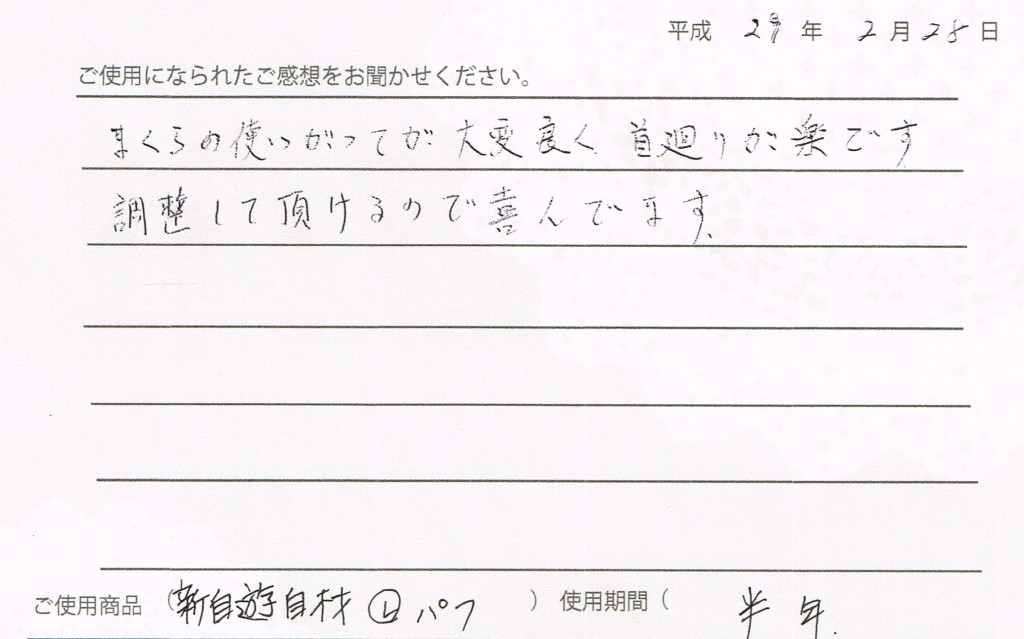 平成 29 年 2 月 28 日
ご使用になられたご感想をお聞かせください。
まくらの使いがってが大変良く首廻りが楽です
調整して頂けるので喜んでます。
ご使用商品 (新自遊自材 Ⓛ パフ ) 使用期間 ( 半年.